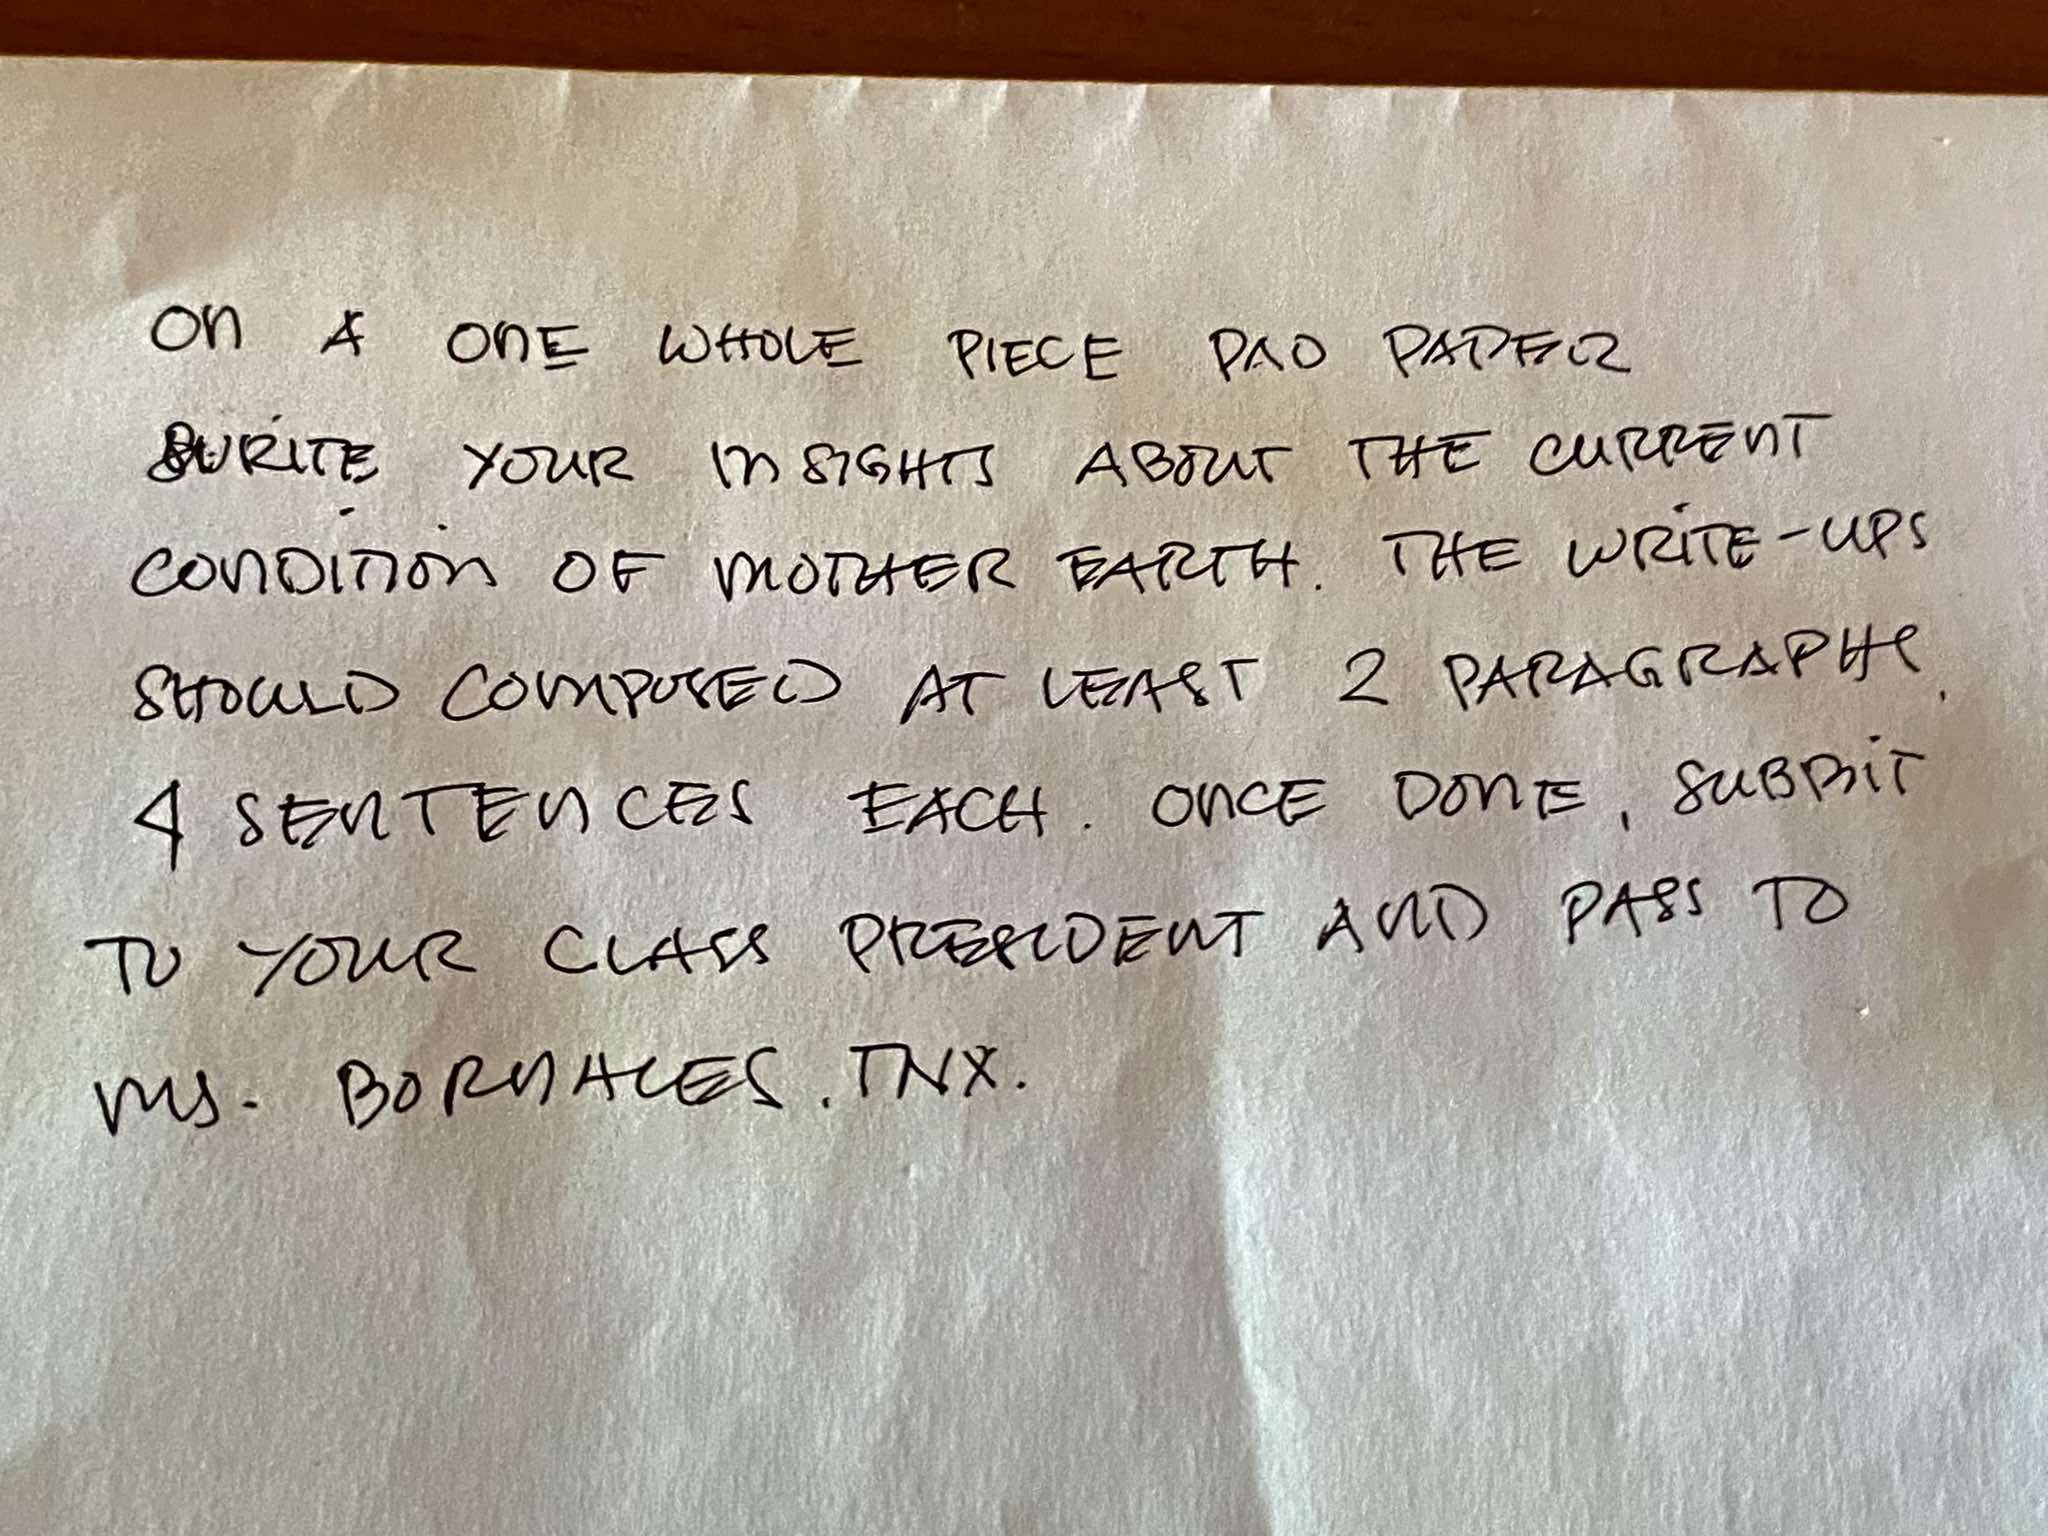 ON A ONE WHOLE PIECE PAD PAPER
WRITE YOUR INSIGHTS ABOUT THE CURRENT
CONDITION OF MOTHER EARTH. THE WRITE-UPS
SHOULD COMPOSED AT LEAST 2 PARAGRAPHS,
4 SENTENCES EACH. ONCE DONE, SUBMIT
TO YOUR CLASS PRESIDENT AND PASS TO
MS. BORNALES. TNX.